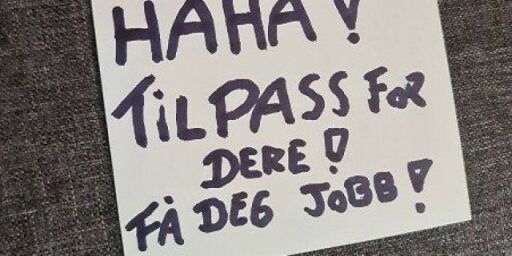 HAHA!
TILPASS FOR
DERE!
FÅ DEG JOBB!